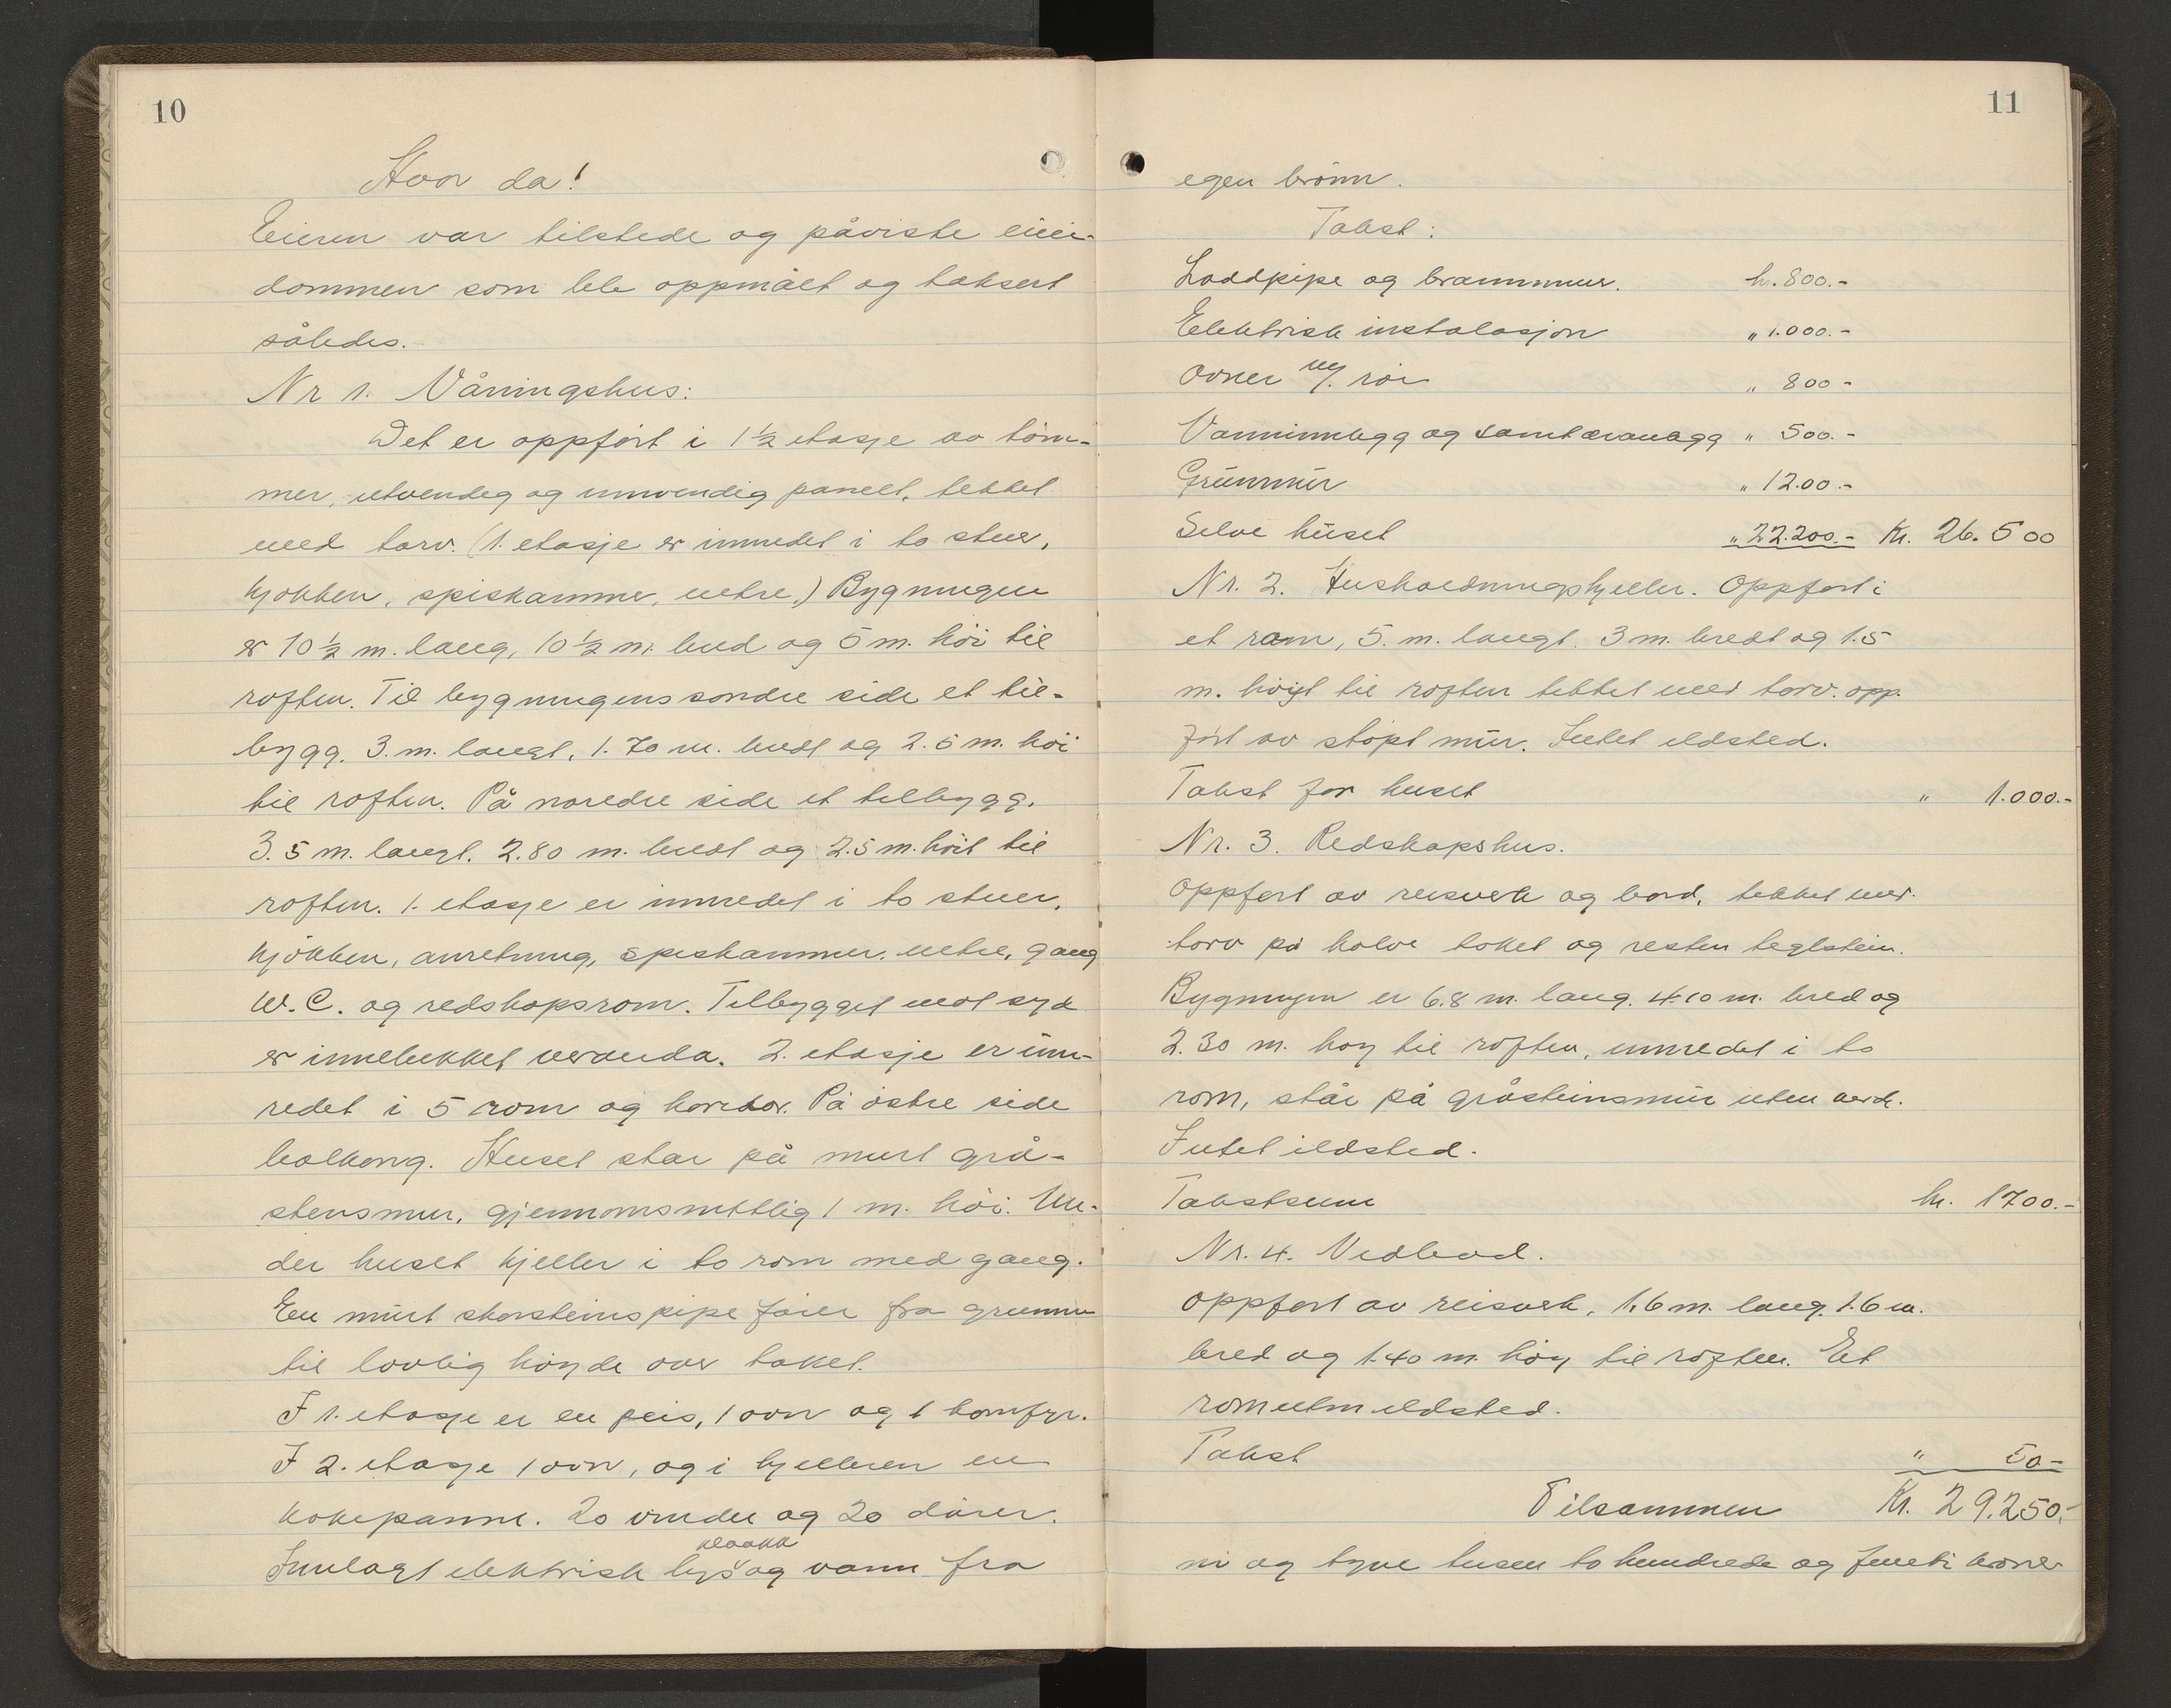 10
Hvor da!
Eieren var tilstede og påviste eien-
dommen som ble oppmålt og taksert
således.
Nr 1. Våningshus:
Det er oppført i 1½ etasje av töm-
mer, utvendig og innvendig panelt, tekket
med torv. (1. etasje er innredet i to stuer,
kjøkken, spiskammer, entre,) Bygningen
er 10½ m. lang, 10½ m. bred og 5 m. høi til
röften. Til bygningens søndre side et til-
bygg. 3. m. langt, 1.70 m. bredt og 2.5 m. höi
til röften. På nordre side et tilbygg.
3.5 m. langt. 2.80 m. bredt og 2.5 m. höit til
röften. 1. etasje er innredet i to stuer,
kjökken, anretning, spiskammer, entre, gang
W.C. og redskapsrom. Tilbygget mot syd
er innelukket veranda. 2. etasje er inn-
redet i 5 rom og koridor. På östre side
balkong. Huset står på murt grå-
stensmur, gjennomsnittlig 1 m. höi. Un-
der huset kjeller i to rom med gang.
En murt skorsteinspipe förer fra grunnen
til lovlig høyde over taket.
I 1. etasje er en peis, 1 ovn og 1 komfyr.
I 2. etasje 1 ovn, og i kjelleren en
kokepanne. 20 vinduer og 20 dörer.
kloakk
Innlagt elektrisk lys og vann fra
11
egen brönn.
Takst:
Loddpipe og brannmur. kr. 800.-
Elektrisk instalasjon " 1.000.-
Ovner m/. rör " 800 -
Vanninnlegg og sanitæranlegg " 500.-
Grunnmur " 1200.-
Selve huset " 22.200.- Kr. 26.500
Nr. 2. Husholdningskjeller. Oppført i
et rom, 5. m. langt. 3 m. bredt og 1.5
m. höyt til röften tekket med torv. opp-
fört av stöpt mur. Intet ildsted.
Takst for huset " 1.000.-
Nr. 3. Redskapshus.
Oppført av reisverk og bord, tekket med
torv på halve taket og resten teglstein.
Bygningen er 6.8 m. lang. 4.10 m. bred og
2.30 m. høy til röften, innredet i to
rom, står på gråsteinsmur uten verdi.
Intet ildsted.
Takstsum kr. 1700.-
Nr. 4. Vedbod.
Oppfört av reisverk, 1.6 m. lang. 1.6 m.
bred og 1.40 m. höy til röften. Et
rom uten ildsted.
Takst " 50.-
Tilsammen Kr. 29.250.-
ni og tyve tusen to hundrede og femti kroner